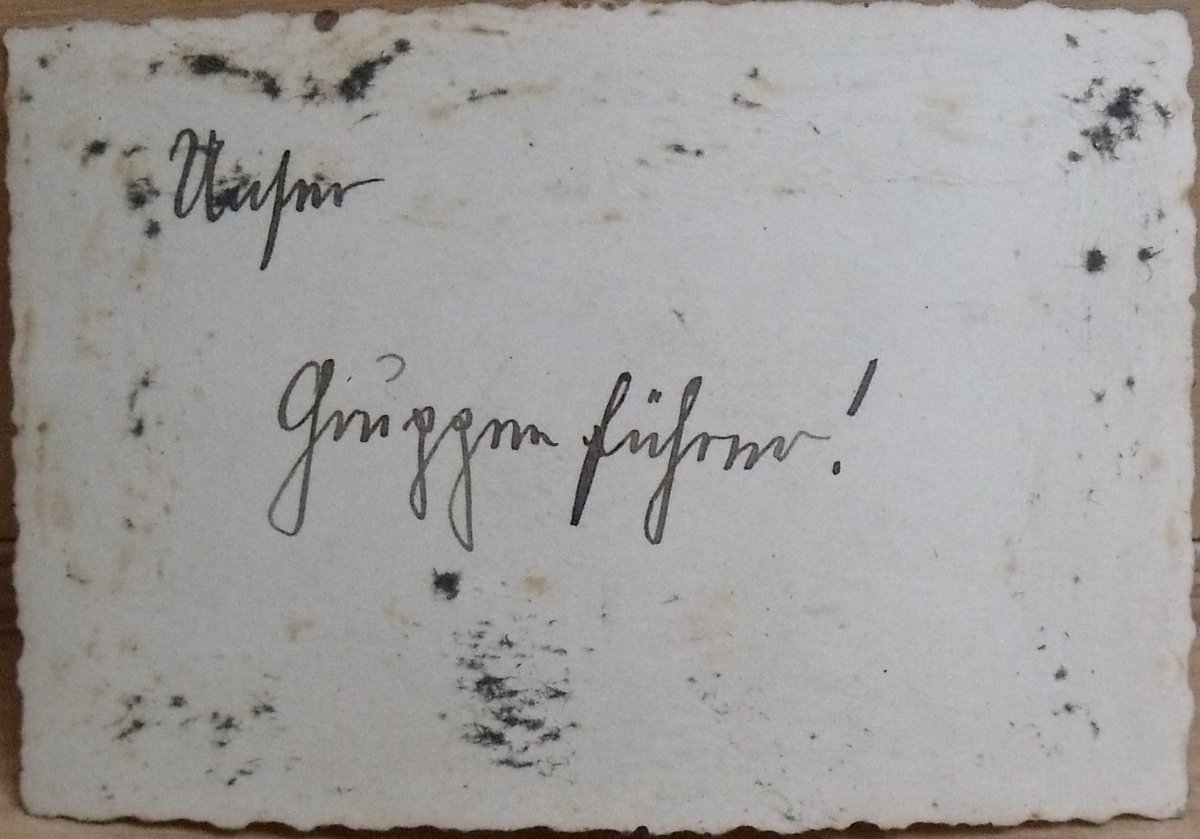 Unser
Gruppenführer!